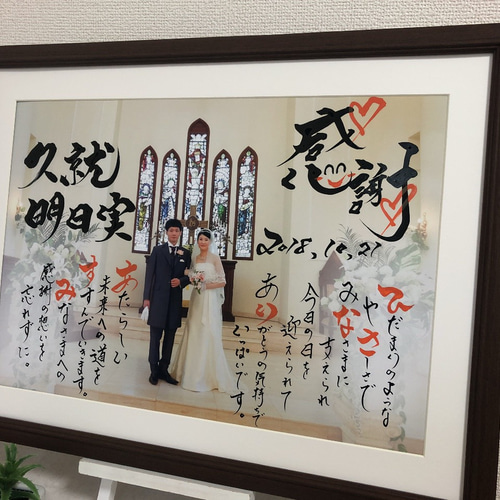 感謝
2018.10.21
久就
明日実
ひだまりのような
やさしさで
みなさまに
支えられ
今日の日を
迎えられて
ありがとうの気持ちで
いっぱいです。
あたらしい
未来への道を
すすんでいきます。
みなさまへの
感謝の想いを
忘れずに。